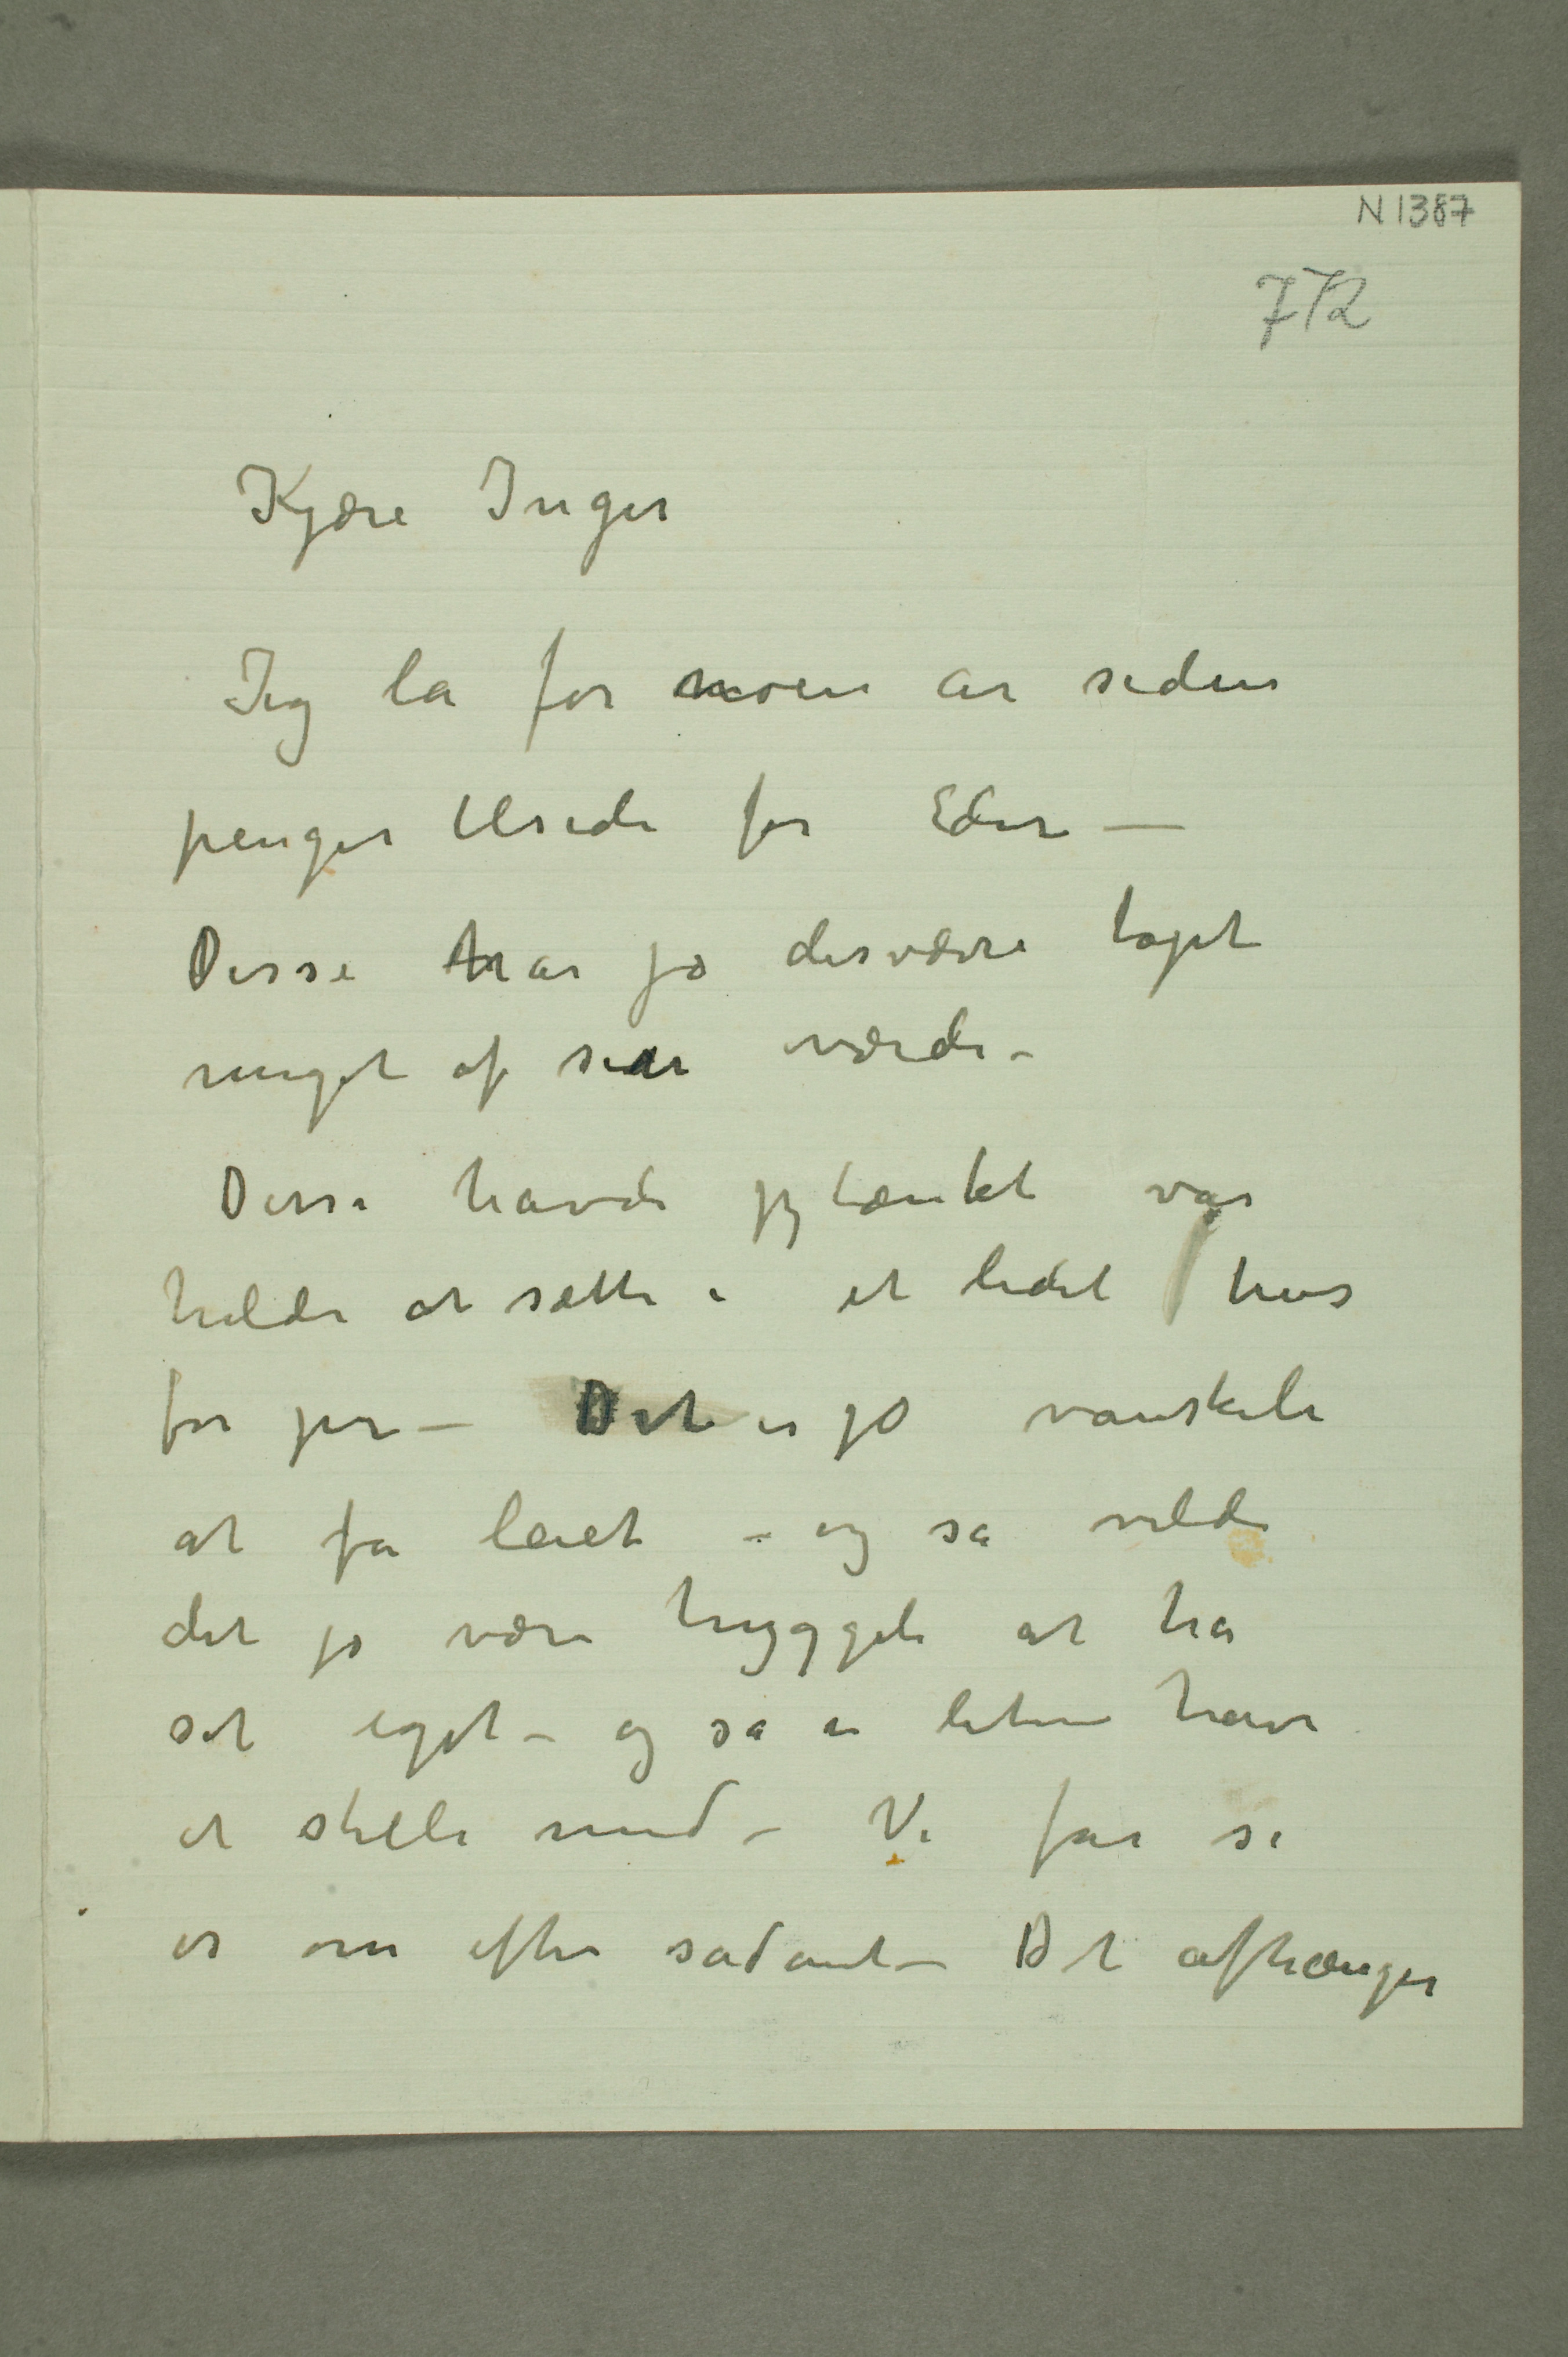 N 1387
772
Kjære Inger
Jeg la for noen år siden
penger tilside for Eder –
Disse har jo desværre tapt
meget af sin værdi –
Disse havde jeg tænkt var
heldi at sætte i et lidet hus
for jer – Det er jo vanskeli
at få leiet – og så vilde
det jo være hyggeli at ha
sit eget – og så en liten have
at stelle med – Vi får se
os om efter sådant – Det afhænger